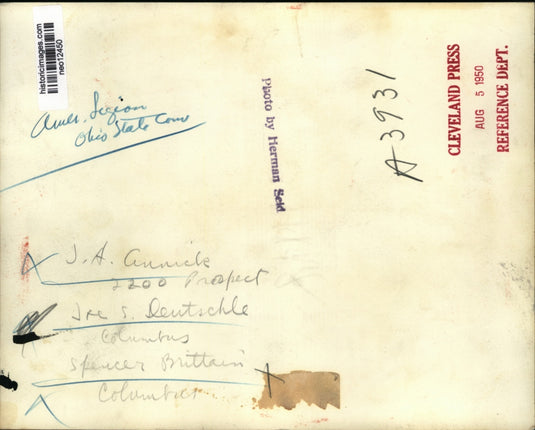 historicimages.com
neo12450
Amer. Legion
Ohio State Conv
Photo by Herman Seid
A3931
CLEVELAND PRESS
AUG 5 1950
REFERENCE DEPT.
J. A. Annick
2200 Prospect
Joe S. Deutschle
Columbus
Spencer Brittain
Columbus